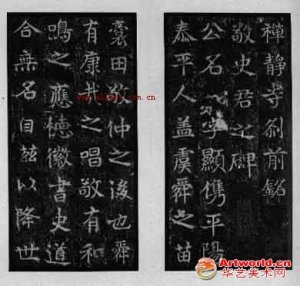 禪靜寺刹前銘
敬史君之碑
公名顯儁平陽
泰平人蓋虞舜之苗
裔田敬仲之後也舜
有康哉之唱敬有和
鳴之應徳徽書史道
合無名自茲以降世
Artworld.cn
华艺美术网